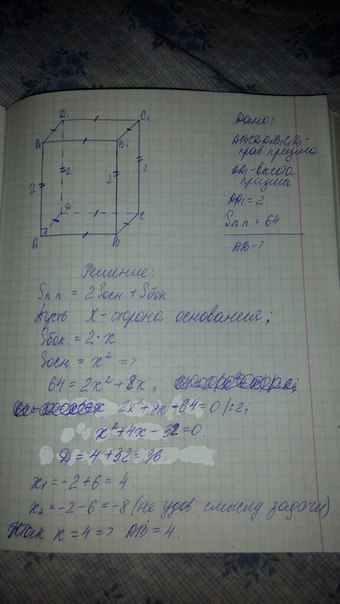 D₁
C₁
A₁
B₁
2
2
2
2
D
C
A
B
Дано:
ABCDA₁B₁C₁D₁-
прав призма
AA₁-высота
призмы
AA₁=2
Sп.п. = 64
AB-?
Решение:
Sп.п. = 2Sосн.+Sбок.
Пусть X-сторона основания;
Sбок. = 2·x
Sосн = x² =>
64=2x²+8x,
2x²+8x-64=0/:2;
x²+4x-32=0.
D=4+32=36.
x₁=-2+6=4.
x₂=-2-6=-8 (не удов смыслу задачи).
Так x=4=> AB=4.